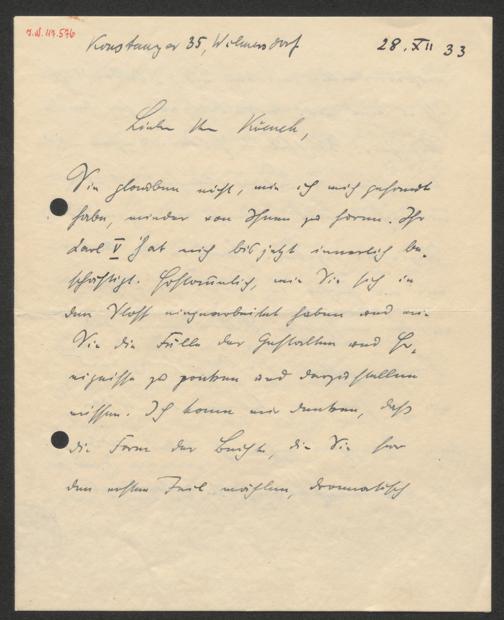 I.N. 119.576
Konstanzer 35, Wilmersdorf 28. XII 33
Lieber Herr Kuench,
Sie glauben nicht, wie ich mich gefreut
habe, wieder von Ihnen zu hören. Ihr
Karl V hat mich bis jetzt innerlich be-
schäftigt. Erstaunlich, wie Sie sich in
den Stoff eingearbeitet haben und wie
Sie die Fülle der Gestalten und Er-
eignisse zu und darzustellen
wissen. Ich kann mir denken, daß
die Form der Beichte, die Sie für
den ersten Teil wählen, dramatisch